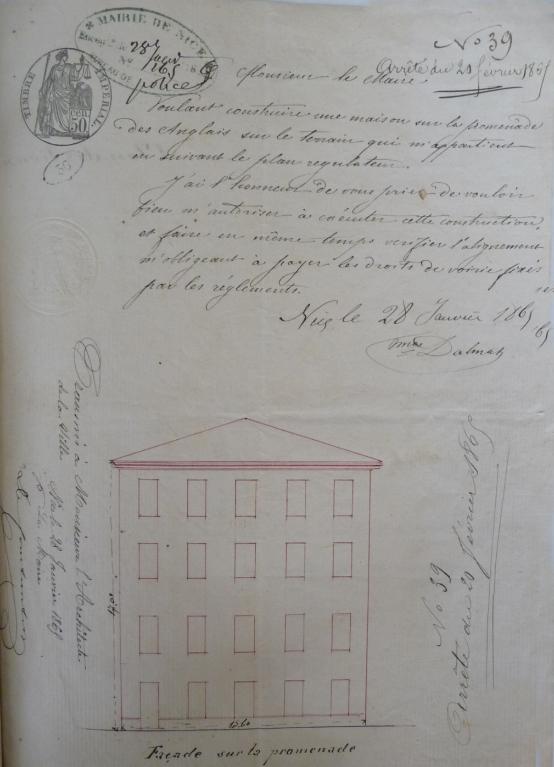 MAIRIE DE NICE
No
287
police
TIMBRE IMPERIAL
50 cen
No 39
Arrêté du 20 février 1865
Monsieur le Maire
Voulant construire une maison sur la promenade
des Anglais sur le terrain qui m'appartient
en suivant le plan regulateur.
J'ai l'honneur de vous prier de vouloir
bien m'autoriser à exécuter cette construction,
et faire en même temps verifier l'alignement
m'obligeant à payer les droits de voirie fixés
par les réglements.
Nice le 28 Janvier 1865
Dalmas
Transmis à Monsieur l'Architecte
de la Ville
Nice le 28 Janvier 1865
Le Maire
No 39
Arrêté du 20 février 1865
Façade sur la promenade